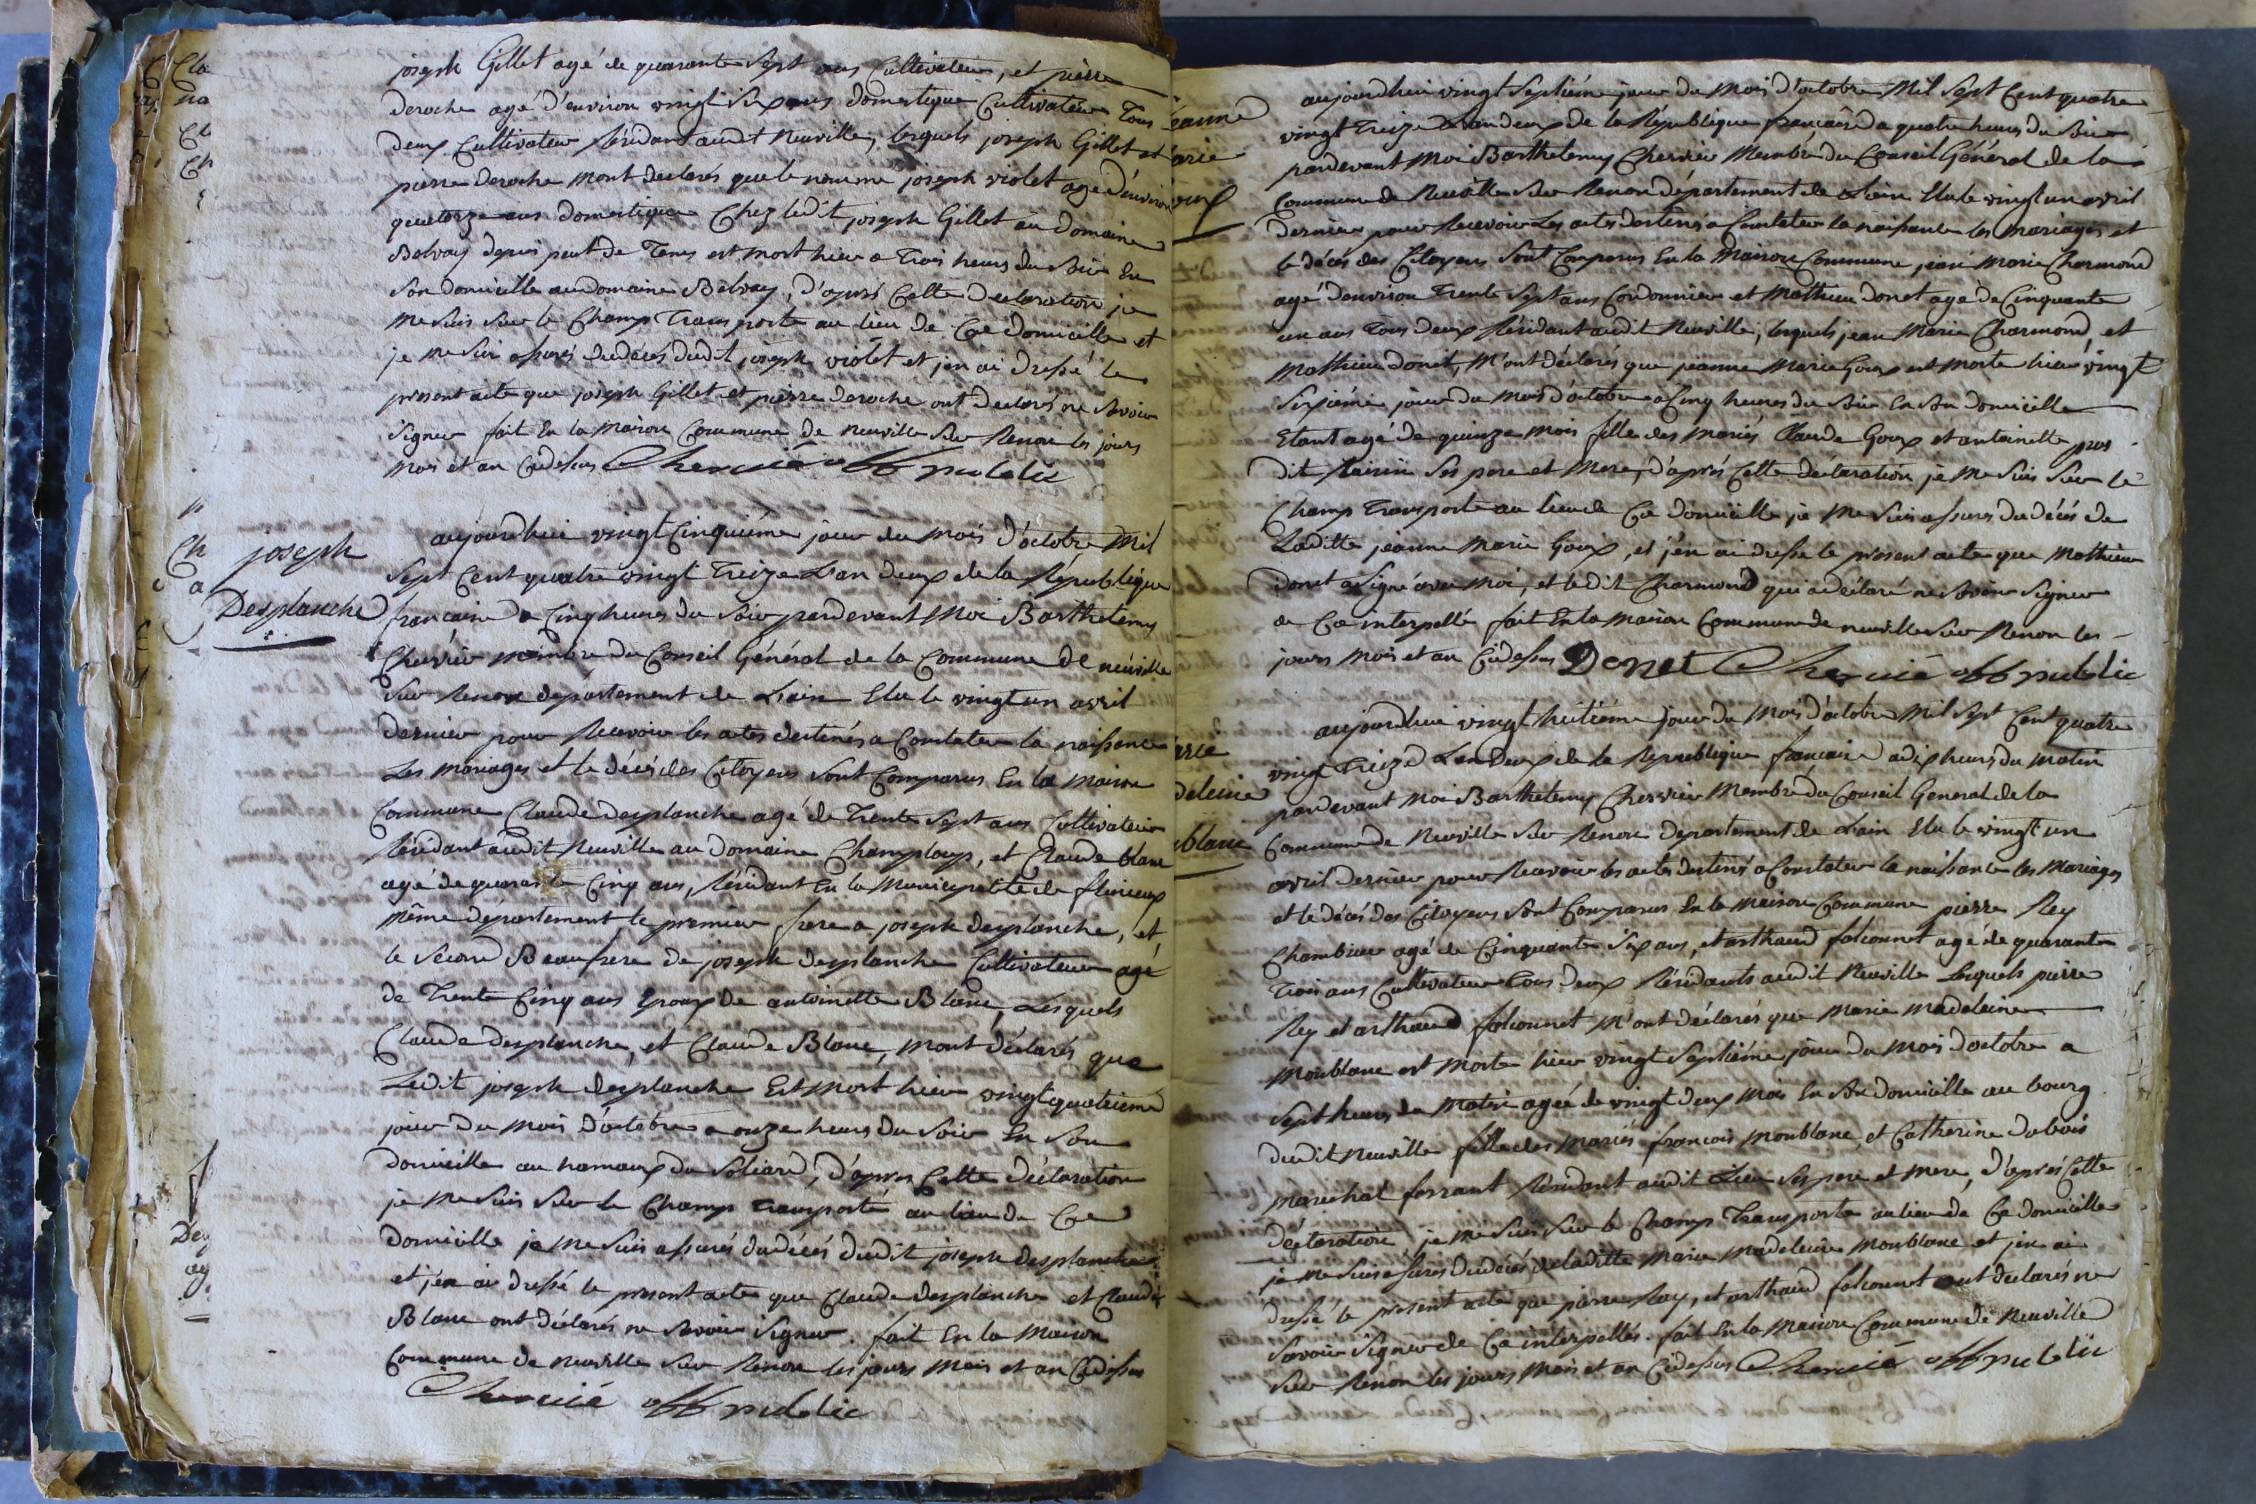 joseph Gillet agé de quarante Sept ans Cultivateur, et pierre
deroche agé d'environ vingt Six ans domestique Cultivateur Tous
deux Cultivateur Résidant audit Neuville, lesquels joseph Gillet et
pierre deroche mont declarés que le nommé joseph violet agé d'environ
quatorze ans domestique Chez ledit joseph Gillet au domaine
Belvay depuis peut de Tems est mort hier a Trois heures du Soir En
Son domicille au domaine Belvay, d'après Cette declaration je
me Suis Sur le Champ Transporté au lieu de Ce domicille et
je me Suis assurés du décés dudit joseph violet et jen ai dressé le
présent acte que joseph Gillet et pierre deroche ont declarés ne Savoir
Signer fait En la maison Commune de neuville Sur Renon les jours
mois et an Cydessus Chervié off public
joseph
Desplanche
aujourdhui vingt Cinquiéme jour du mois d'octobre Mil
Sept Cent quatre vingt Treize L'an deux de la République
francaise a Cinq heures du Soir pardevant Moi Barthelemy
Chervié membre du Conseil Général de la Commune de neuville
Sur Renon département de Lain Elu le vingt un avril
dernier pour Recevoir les actes destinés a Constater la naissance
Les mariages et le décés des Citoyens Sont Comparus En la maison
Commune Claude desplanche agé de Trente Sept ans Cultivateur
Résidant audit Neuville au domaine Champloup, et Claude blanc
agé de quarante Cinq ans, Résidant En la Municipalité de fleurieux
même département, le premier frere a joseph desplanche, et
le Second Beaufrere de joseph desplanche Cultivateur agé
de Trente Cinq ans Epoux de antoinette Blanc, Lesquels
Claude desplanche, et Claude Blanc, mont déclarés que
Ledit joseph desplanche Est Mort hier vingt quatriéme
jour du mois d'octobre a onze heures du Soir En Son
domicille au hamaux du Soliard, d'après Cette déclaration
je me Suis Sur le Champ Transporté au lieu de Ce
domicille je me Suis assurés du décés dudit joseph desplanche
et j'en ai dressé le present acte que Claude desplanche et Claude
Blanc ont déclarés ne Savoir Signer. fait En la Maison
Commune de neuville Sur Renon les jours Mois et an Cidessus
Chervié off public
aujourdhui vingt Septiéme jour du Mois d'octobre Mil Sept Cent quatre
vingt Treize L'an deux de la République francaise a quatre heures du Soir
pardevant Moi Barthelemy Chervier Membre du Conseil Général de la
Commune de Neuville Sur Renon département de Lain Elu le vingt un avril
dernier pour Recevoir Les actes destinés a Constater la naissance les Mariages et
le décés des Citoyens Sont Comparus En la Maison Commune jean Marie Charmond
agé d'environ Trente Sept ans Cordonnier et Mathieu donet agé de Cinquante
un ans Tous deux Résidant audit Neuville, lesquels jean Marie Charmond, et
Mathieu donet, M'ont déclarés que jeanne Marie Goux est Morte hier vingt
Sixiéme jour du mois d'octobre a Cinq heures du Soir En Son domicille
Etant agé de quinze Mois fille des Mariés Claude Goux et antoinette pros
dit Ses pere et Mere, d'après Cette déclaration, je Me Suis Sur le
Champ Transporté au lieu de Ce domicille je Me Suis assurés du décés de
Laditte jeanne Marie Goux, et j'en ai dressé le présent acte que Mathieu
donet a Signé avec Moi, et ledit Charmond qui a déclaré ne Savoir Signer
de Ce interpellé fait En la Maison Commune de neuville Sur Renon les
jours Mois et an Cydessus Donet Chervié off public
aujourdhui vingt huitiéme jour du Mois d'octobre Mil Sept Cent quatre
vingt Treize L'an Deux de la Republique francaise a dix heures du Matin
pardevant Moi Barthelemy Chervier Membre du Conseil Général de la
Commune de Neuville Sur Renon Departement de Lain Elu le vingt un
avril Dernier pour Recevoir les actes destiné a Constater la naissance les Mariages
et le décés des Citoyens Sont Comparus En la Maison Commune pierre Rey
Chambiere agé de Cinquante Six ans, et arthaud falconnet agé de quarante
Trois ans Cultivateur Tous Deux Résidants audit Neuville Lesquels pierre
Rey et arthaud falconnet M'ont déclarés que Marie Madeleine
Monblanc est Morte hier vingt Septiéme jour du Mois d'octobre a
Sept heures du Matin agée de vingt deux Mois En Son domicille au bourg
dudit Neuville fille des Mariés francois Monblanc et Catherine dubois
Marechal ferrant Résidant audit Lieu Ses pere et Mere, d'après Cette
déclaration je me Suis Sur le Champ Transporté au lieu de Ce domicille
je me Suis assurés du décés de laditte Marie Madeleine Monblanc et j'en ai
dressé le présent acte que pierre Rey, et arthaud falconnet ont déclarés ne
Savoir Signer de Ce interpellés. fait En la Maison Commune de Neuville
Sur Renon les jours Mois et an Cidessus Chervié off public